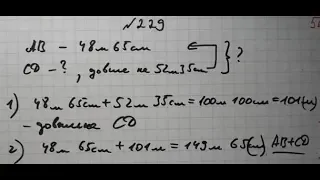 №229
AB - 48м 65см
CD - ?, довше на 52м 35см } ?
1) 48м 65см + 52м 35см = 100м 100см = 101(м)
- довжина CD
2) 48м 65см + 101м = 149м 65(см) AB+CD